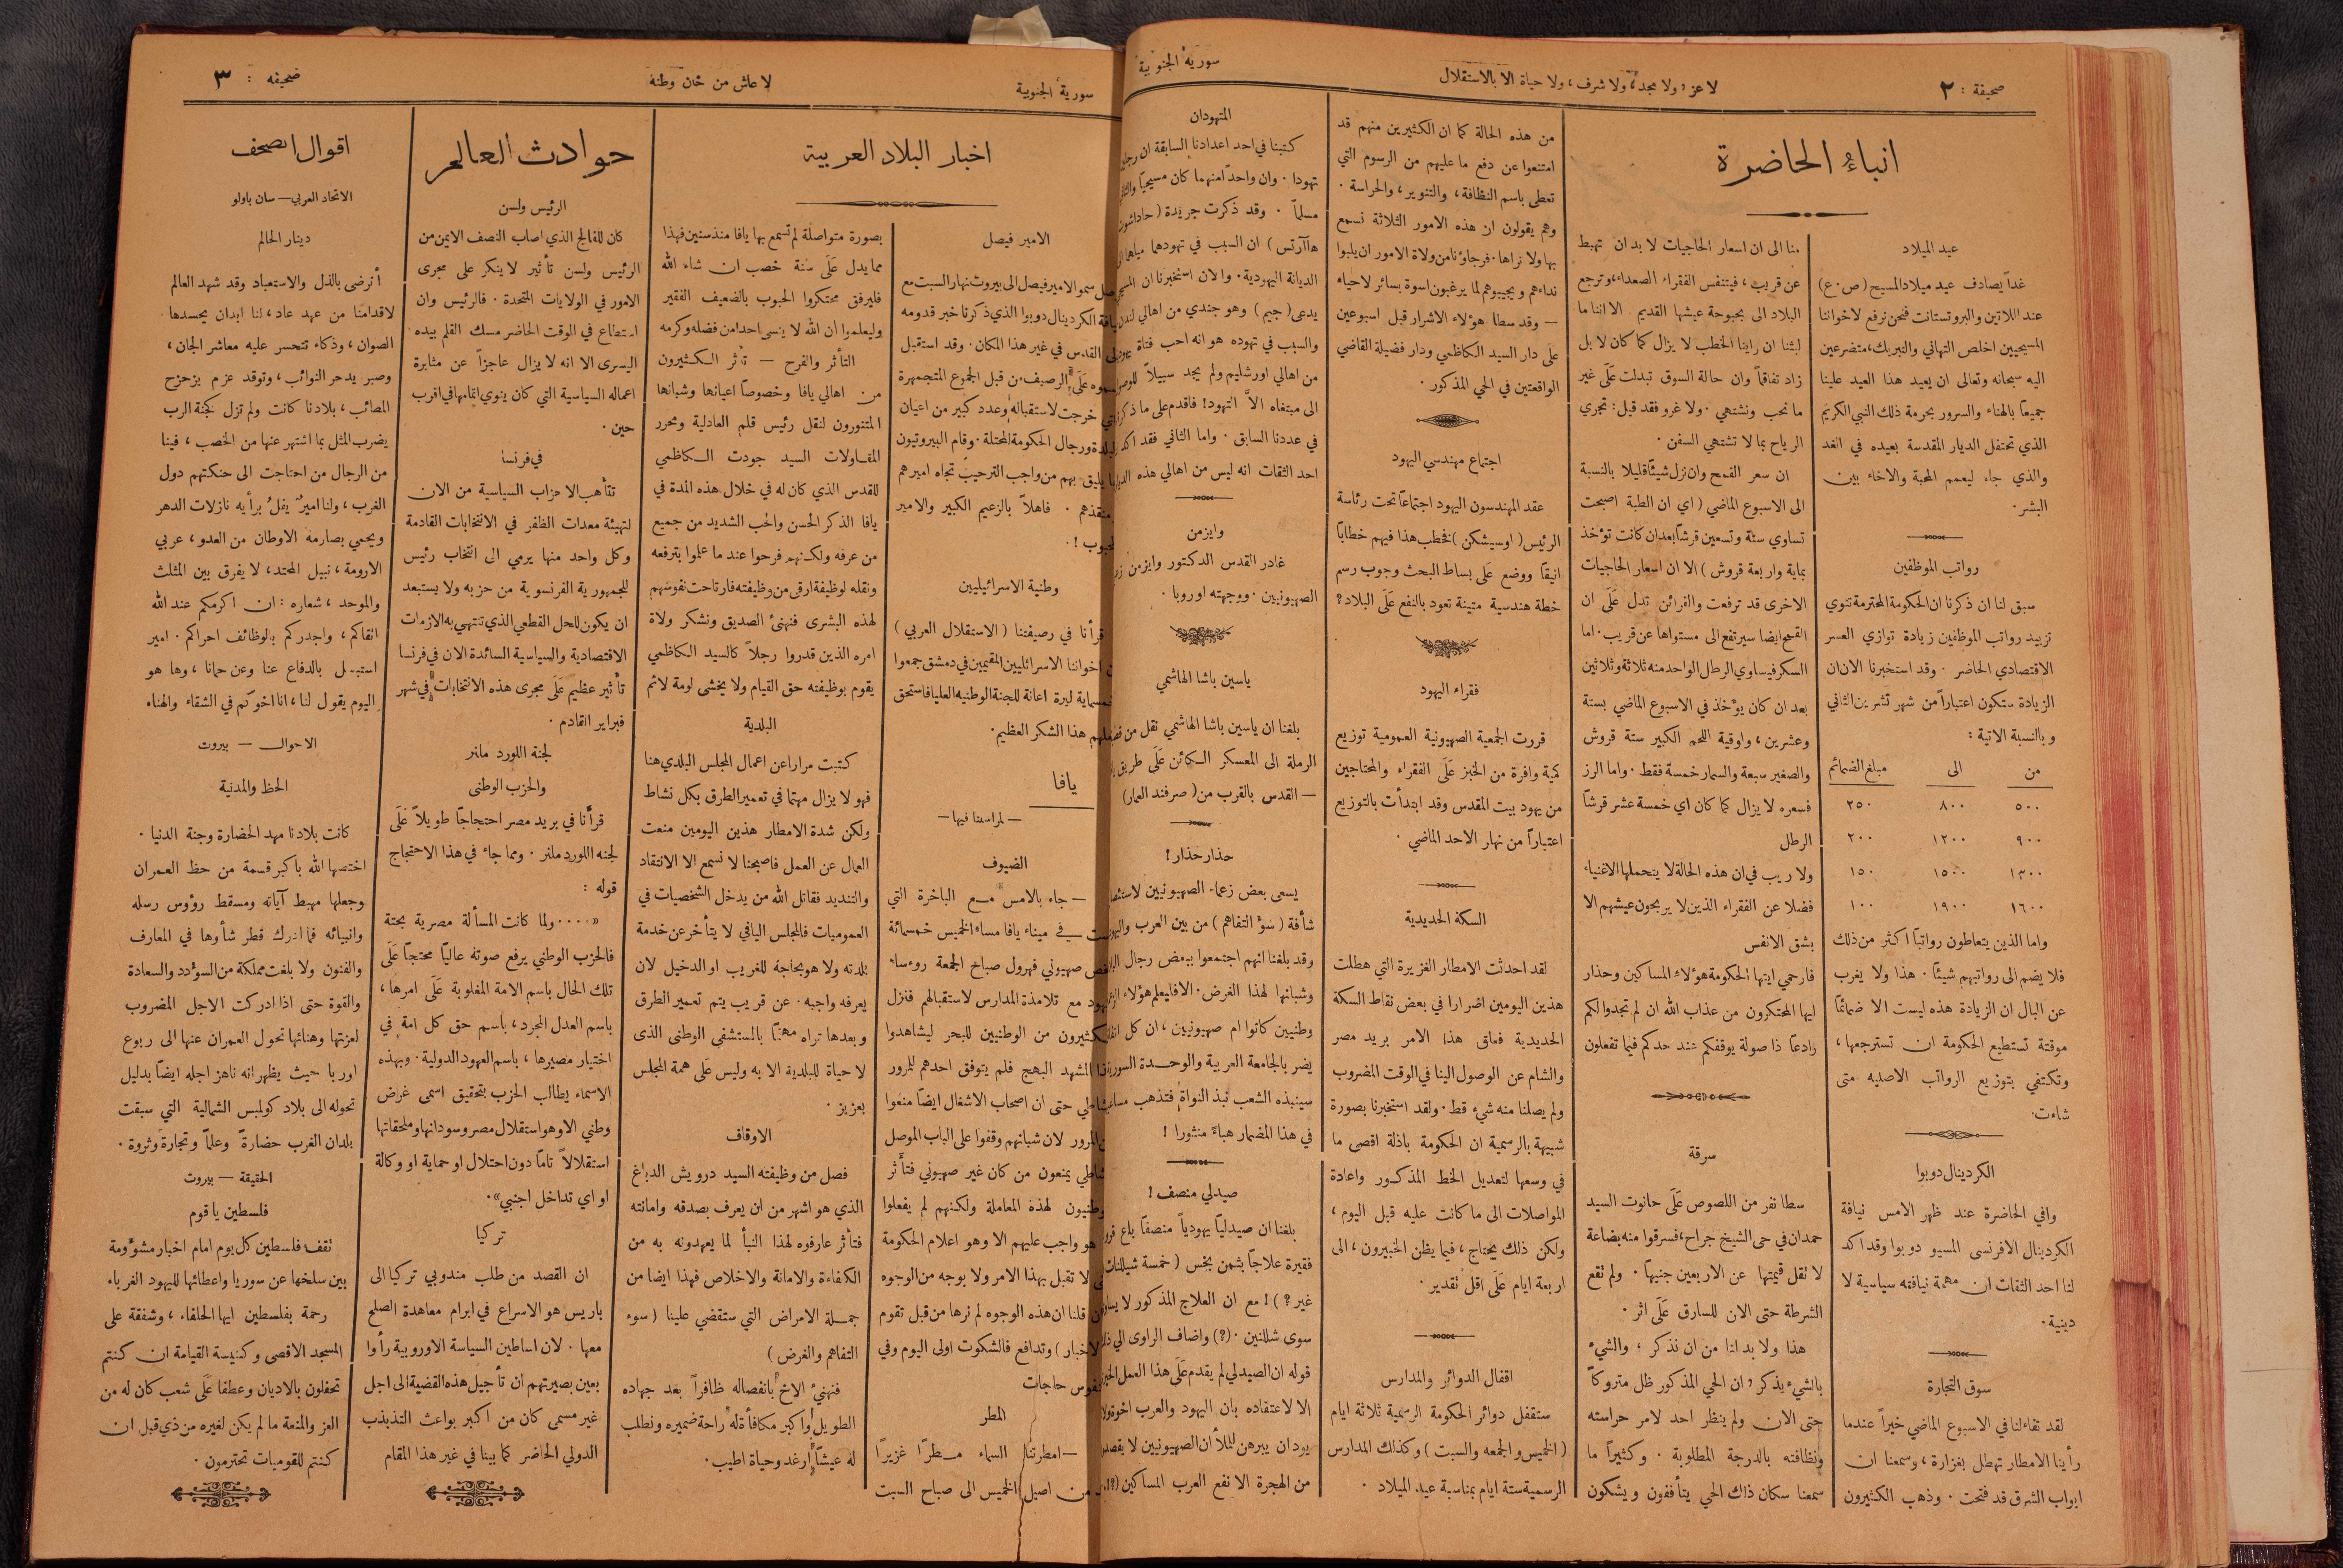 صحيفة : ٢
لا عز ، ولا مجد، ولا شرف ، ولا حياة الا بالاستقلال
سورية الجنوبية
انباء الحاضرة
عيد الميلاد
غداً يصادف عيد ميلاد المسيح (ص . ع)
عند اللاتين والبروتستانت فنحن نرفع لاخواننا
المسيحيين اخلص التهاني والتبريك ، متضرعين
اليه سبحانه وتعالى ان يعيد هذا العيد علينا
جميعاً بالهناء والسرور بحرمة ذلك النبي الكريم
الذي تحتفل الديار المقدسة بعيده في الغد
والذي جاء ليعمم المحبة والاخاء بين
البشر .
رواتب الموظفين
سبق لنا ان ذكرنا ان الحكومة المحترمة تنوي
تزييد رواتب الموظفين زيادة توازي العسر
الاقتصادي الحاضر . وقد استخبرنا الان ان
الزيادة ستكون اعتباراً من شهر تشرين الثاني
وبالنسبة الاتية :
من الى مبلغ الضمائم
٥٠٠ ٨٠٠ ٢٥٠
٩٠٠ ١٢٠٠ ٢٠٠
١٣٠٠ ١٥٠٠ ١٥٠
١٦٠٠ ١٩٠٠ ١٠٠
واما الذين يتعاطون رواتباً اكثر من ذلك
فلا يضم الى رواتبهم شيئاً . هذا ولا يغرب
عن البال ان الزيادة هذه ليست الا ضمائماً
موقتة تستطيع الحكومة ان تسترجمها ،
وتكتفي بتوزيع الرواتب الاصليه متى
شاءت .
الكردينال دوبوا
وافي الحاضرة عند ظهر الامس نيافة
الكردينال الافرنسى المسيو دوبوا وقد اكد
لنا احد الثقات ان مهمة نيافته سياسية لا
دينية .
سوق التجارة
لقد تفاءلنا في الاسبوع الماضي خيراً عندما
رأينا الامطار تهطل بغزارة ، وسمعنا ان
ابواب الشرق قد فتحت . وذهب الكثيرون
منا الى ان اسعار الحاجيات لا بد ان تهبط
عن قريب ، فيتنفس الفقراء الصعداء ، وترجع
البلاد الى بحبوحة عيشها القديم . الا اننا ما
لبثنا ان راينا الخطب لا يزال كما كان لا بل
زاد تفاقماً وان حالة السوق تبدلت عَلَى غير
ما نحب ونشتهي . ولا غرو فقد قيل : تجري
الرياح بما لا تشتهي السفن .
ان سعر القمح وان نزل شيئاً قليلا بالنسبة
الى الاسبوع الماضي ( اي ان الطبة اصبحت
تساوي ستة وتسعين قرشاً بعد ان كانت تؤخذ
بماية واربعة قروش ) الا ان اسعار الحاجيات
الاخرى قد ترفعت والقرائن تدل عَلَى ان
القمح ايضا سيرتفع الى مستواها عن قريب . اما
السكر فيساوي الرطل الواحد منه ثلاثة وثلاثين
بعد ان كان يؤخذ في الاسبوع الماضي بستة
وعشرين ، واوقية اللحم الكبير ستة قروش
والصغير سبعة والسمار خمسة فقط . واما الرز
فسعره لا يزال كما كان اي خمسة عشر قرشاً
الرطل
ولا ريب في ان هذه الحالة لا يتحملها الاغنياء
فضلا عن الفقراء الذين لا يربحون عيشهم الا
بشق الانفس
فارحمي ايتها الحكومة هؤلاء المساكين وحذار
ايها المحتكرون من عذاب الله ان لم تجدوا لكم
رادعاً ذا صولة يوقفكم عند حدكم فيما تفعلون
سرقة
سطا نفر من اللصوص عَلَى حانوت السيد
حمدان في حى الشيخ جراح ، فسرقوا منه بضاعة
لا تقل قيمتها عن الاربعين جنيهاً . ولم تقع
الشرطة حتى الان للسارق عَلَى اثر .
هذا ولا بد لنا من ان نذكر ، والشيء
بالشيء يذكر ، ان الحي المذكور ظل متروكاً
حتى الان ولم ينظر احد لامر حراسته
ونظافته بالدرجة المطلوبة . وكثيراً ما
سمعنا سكان ذاك الحي يتأففون ويشكون
من هذه الحالة كما ان الكثيرين منهم قد
امتنعوا عن دفع ما عليهم من الرسوم التي
تعطى باسم النظافة ، والتنوير ، والحراسة .
وهم يقولون ان هذه الامور الثلاثة نسمع
بها ولا نراها . فرجاؤنا من ولاة الامور ان يلبوا
نداءهم ويجيبوهم لما يرغبون اسوة بسائر الاحياء
— وقد سطا هؤلاء الاشرار قبل اسبوعين
عَلَى دار السيد الكاظمي ودار فضيلة القاضي
الواقعتين في الحي المذكور .
اجتماع مهندسي اليهود
عقد المهندسون اليهود اجتماعاً تحت رئاسة
الرئيس ( اوسيشكن ) فخطب هذا فيهم خطاباً
انيقاً ووضع عَلَى بساط البحث وجوب رسم
خطة هندسية متينة تعود بالنفع عَلَى البلاد ؟
فقراء اليهود
قررت الجمعية الصهيونية العمومية توزيع
كمية وافرة من الخبز عَلَى الفقراء والمحتاجين
من يهود بيت المقدس وقد ابتدأت بالتوزيع
اعتباراً من نهار الاحد الماضي .
السكة الحديدية
لقد احدثت الامطار الغزيرة التي هطلت
هذين اليومين اضرارا في بعض نقاط السكة
الحديدية فعاق هذا الامر بريد مصر
والشام عن الوصول الينا في الوقت المضروب
ولم يصلنا منه شيء قط . ولقد استخبرنا بصورة
شبيهة بالرسمية ان الحكومة باذلة اقصى ما
في وسعها لتعديل الخط المذكور واعادة
المواصلات الى ما كانت عليه قبل اليوم ،
ولكن ذلك يحتاج ، فيما يظن الخبيرون ، الى
اربعة ايام عَلَى اقل تقدير .
اقفال الدوائر والمدارس
ستقفل دوائر الحكومة الرسمية ثلاثة ايام
( الخميس والجمعه والسبت ) وكذلك المدارس
الرسمية ستة ايام بمناسبة عيد الميلاد .
المتهودان
كتبنا في احد اعدادنا السابقة ان
تهودا . وان واحداً منهما كان مسيحياً
مسلماً . وقد ذكرت جريدة (
هاآرتس ) ان السبب في تهودهما
الديانة اليهودية . والان استخبرنا ان
يدعى ( جيم ) وهو جندي من اهالي
والسبب في تهوده هو انه احب فتاة
من اهالي اورشليم ولم يجد سبيلاً
الى مبتغاه الاّ التهود ! فاقدم على ما
في عددنا السابق . واما الثاني فقد
احد الثقات انه ليس من اهالي هذه
وايزمن
غادر القدس الدكتور وايزمن
الصهيونيين . ووجهته اوروبا .
ياسين باشا الهاشمي
بلغنا ان ياسين باشا الهاشمي نقل من
الرملة الى المعسكر الكائن عَلَى طريق
— القدس بالقرب من ( صرفند العمار )
حذار حذار !
يسعى بعض زعماء الصهيونيين
شأفة ( سوء التفاهم ) من بين العرب
وقد بلغنا انهم اجتمعوا ببعض رجال
وشبانها لهذا الغرض . الا فليعلم هؤلاء
وطنيين كانوا ام صهيونيين ، ان كل
يضر بالجامعة العربية والوحدة
سينبذه الشعب نبذ النواة فتذهب
في هذا المضمار هباءً منثورا !
صيدلي منصف !
بلغنا ان صيدلياً يهودياً منصفاً باع
فقيرة علاجاً بثمن بخس ( خمسة شيللنات
غير ؟ ) ! مع ان العلاج المذكور لا
سوى شللنين . (؟) واضاف الراوى الى
قوله ان الصيدلي لم يقدم عَلَى هذا العمل
الا لاعتقاده بان اليهود والعرب
يود ان يبرهن للملأ ان الصهيونيين لا
من الهجرة الا نفع العرب المساكين
سورية الجنوبية
لا عاش من خان وطنه
صحيفه : ٣
اخبار البلاد العربية
الامير فيصل
سمو الامير فيصل الى بيروت نهار السبت مع
الكردينال دوبوا الذي ذكرنا خبر قدومه
القدس في غير هذا المكان . وقد استقبل
عَلَى الرصيف من قبل الجموع المتجمهرة
خرجت لاستقباله وعدد كبير من اعيان
ورجال الحكومة المحتلة . وقام البيروتيون
يليق بهم من واجب الترحيب تجاه اميرهم
. فاهلاً بالزعيم الكبير والامير
!
وطنية الاسرائيليين
قرأنا في رصيفتنا ( الاستقلال العربي )
اخواننا الاسرائليين المقيمين في دمشق جمعوا
ليرة اعانة للجنة الوطنيه العليا فاستحق
هذا الشكر العظيم .
يافا
— لمراسلنا فيها —
الضيوف
— جاء بالامس مع الباخرة التي
في ميناء يافا مساء الخميس خمسمائة
صهيوني فهرول صباح الجمعة روءساء
مع تلامذة المدارس لاستقبالهم فنزل
من الوطنيين للبحر ليشاهدوا
المشهد البهج فلم يتوفق احدهم للمرور
حتى ان اصحاب الاشغال ايضاً منعوا
المرور لان شبانهم وقفوا على الباب الموصل
يمنعون من كان غير صهيوني فتأثر
لهذه المعاملة ولكنهم لم يفعلوا
هو واجب عليهم الا وهو اعلام الحكومة
لا تقبل بهذا الامر ولا بوجه من الوجوه
قلنا ان هذه الوجوه لم نرها من قبل تقوم
وتدافع فالسكوت اولى اليوم وفي
حاجات
المطر
— امطرتنا السماء مطراً غزيراً
من اصيل الخميس الى صباح السبت
بصورة متواصلة لم تسمع بها يافا منذ سنين فهذا
مما يدل عَلَى سنة خصب ان شاء الله
فليرفق محتكروا الحبوب بالضعيف الفقير
وليعلموا ان الله لا ينسى احدا من فضله وكرمه
التأثر والفرح — تأثر الكثيرون
من اهالي يافا وخصوصاً اعيانها وشبانها
المتنورون لنقل رئيس قلم العادلية ومحرر
المقاولات السيد جودت الكاظمي
للقدس الذي كان له في خلال هذه المدة في
يافا الذكر الحسن والحب الشديد من جميع
من عرفه ولكنهم فرحوا عند ما علموا بترفعه
ونقله لوظيفة ارقى من وظيفته فارتاحت نفوسهم
لهذه البشرى فنهنئ الصديق ونشكر ولاة
امره الذين قدروا رجلاً كالسيد الكاظمي
يقوم بوظيفته حق القيام ولا يخشى لومة لائم
البلدية
كتبت مرارا عن اعمال المجلس البلدي هنا
فهو لا يزال مهتما في تعمير الطرق بكل نشاط
ولكن شدة الامطار هذين اليومين منعت
العمال عن العمل فاصبحنا لا نسمع الا الانتقاد
والتنديد فقاتل الله من يدخل الشخصيات في
العموميات فالمجلس اليافي لا يتأخر عن خدمة
بلدته ولا هو بحاجة للغريب او الدخيل لان
يعرفه واجبه . عن قريب يتم تعمير الطرق
وبعدها تراه مهتماً بالستشفى الوطنى الذى
لا حياة للبلدية الا به وليس عَلَى همة المجلس
بعزيز .
الاوقاف
فصل من وظيفته السيد درويش الدباغ
الذي هو اشهر من ان يعرف بصدقه وامانته
فتأثر عارفوه لهذا النبأ لما يعهدونه به من
الكفاءة والامانة والاخلاص فهذا ايضا من
جملة الامراض التي ستقضي علينا ( سوء
التفاهم والغرض )
فنهنئ الاخ بانفصاله ظافراً بعد جهاده
الطويل واكبر مكافأة له راحة ضميره ونطلب
له عيشاً ارغد وحياة اطيب .
حوادث العالم
الرئيس ولسن
كان للفالج الذي اصاب النصف الايمن من
الرئيس ولسن تأثير لا ينكر على مجرى
الامور في الولايات المتحدة . فالرئيس وان
استطاع في الوقت الحاضر مسك القلم بيده
اليسرى الا انه لا يزال عاجزاً عن مثابرة
اعماله السياسية التي كان ينوي اتمامها في اقرب
حين .
في فرنسا
تتأهب الاحزاب السياسية من الان
لتهيئة معدات الظفر في الانتخابات القادمة
وكل واحد منها يرمي الى انتخاب رئيس
للجمهورية الفرنسوية من حزبه ولا يستبعد
ان يكون للحل القطعي الذي تنتهي به الازمات
الاقتصادية والسياسية السائدة الان في فرنسا
تأثير عظيم عَلَى مجرى هذه الانتخابات في شهر
فبراير القادم .
لجنة اللورد ملنر
والحزب الوطنى
قرأنا في بريد مصر احتجاجاً طويلاً عَلَى
لجنه اللورد ملنر . ومما جاء في هذا الاحتجاج
قوله :
« .... ولما كانت المسألة مصرية بحتة
فالحزب الوطني يرفع صوته عالياً محتجاً عَلَى
تلك الحال باسم الامة المغلوبة عَلَى امرها ،
باسم العدل المجرد ، باسم حق كل امة في
اختيار مصيرها ، باسم العهود الدولية . وبهذه
الاسماء يطالب الحزب بتحقيق اسمى غرض
وطني الا وهو استقلال مصر وسودانها وملحقاتها
استقلالاً تاماً دون احتلال او حماية او وكالة
او اي تداخل اجنبي » .
تركيا
ان القصد من طلب مندوبي تركيا الى
باريس هو الاسراع في ابرام معاهدة الصلح
معها . لان اساطين السياسة الاوروبية رأوا
بعين بصيرتهم ان تأجيل هذه القضية الى اجل
غير مسمى كان من اكبر بواعث التذبذب
الدولي الحاضر كما بينا في غير هذا المقام
اقوال الصحف
الاتحاد العربي — سان باولو
دينار الحالم
أنرضى بالذل والاستعباد وقد شهد العالم
لاقدامنا من عهد عاد ، لنا ابدان يحسدها
الصوان ، وذكاء تتحسر عليه معاشر الجان ،
وصبر يدحر النوائب ، وتوقد عزم يزحزح
المصائب ، بلادنا كانت ولم تزل كجنة الرب
يضرب المثل بما اشتهر عنها من الخصب ، فينا
من الرجال من احتاجت الى حنكتهم دول
الغرب ، ولنا امير يفل برأيه نازلات الدهر
ويحمي بصارمه الاوطان من العدو ، عربي
الارومة ، نبيل المحتد ، لا يفرق بين المثلث
والموحد ، شعاره : ان اكرمكم عند الله
اتقاكم ، واجدركم بالوظائف احراكم . امير
استبسل بالدفاع عنا وعن حمانا ، وها هو
اليوم يقول لنا ، انا اخوكم في الشقاء والهناء .
الاحوال — بيروت
الحظ والمدنية
كانت بلادنا مهد الحضارة وجنة الدنيا .
اختصها الله باكبر قسمة من حظ العمران
وجعلها مهبط آياته ومسقط رؤوس رسله
وانبيائه فما ادرك قطر شأوها في المعارف
والفنون ولا بلغت مملكة من السؤدد والسعادة
والقوة حتى اذا ادركت الاجل المضروب
لعزتها وهنائها تحول العمران عنها الى ربوع
اوربا حيث يظهر انه ناهز اجله ايضاً بدليل
تحوله الى بلاد كولمبس الشمالية التي سبقت
بلدان الغرب حضارة وعلماً وتجارة وثروة .
الحقيقة — بيروت
فلسطين يا قوم
تقف فلسطين كل يوم امام اخبار مشوؤمة
بين سلخها عن سوريا واعطائها لليهود الغرباء
رحمة بفلسطين ايها الحلفاء ، وشفقة على
المسجد الاقصى وكنيسة القيامة ان كنتم
تحفلون بالاديان وعطفا عَلَى شعب كان له من
العز والمنعة ما لم يكن لغيره من ذي قبل ان
كنتم للقوميات تحترمون .